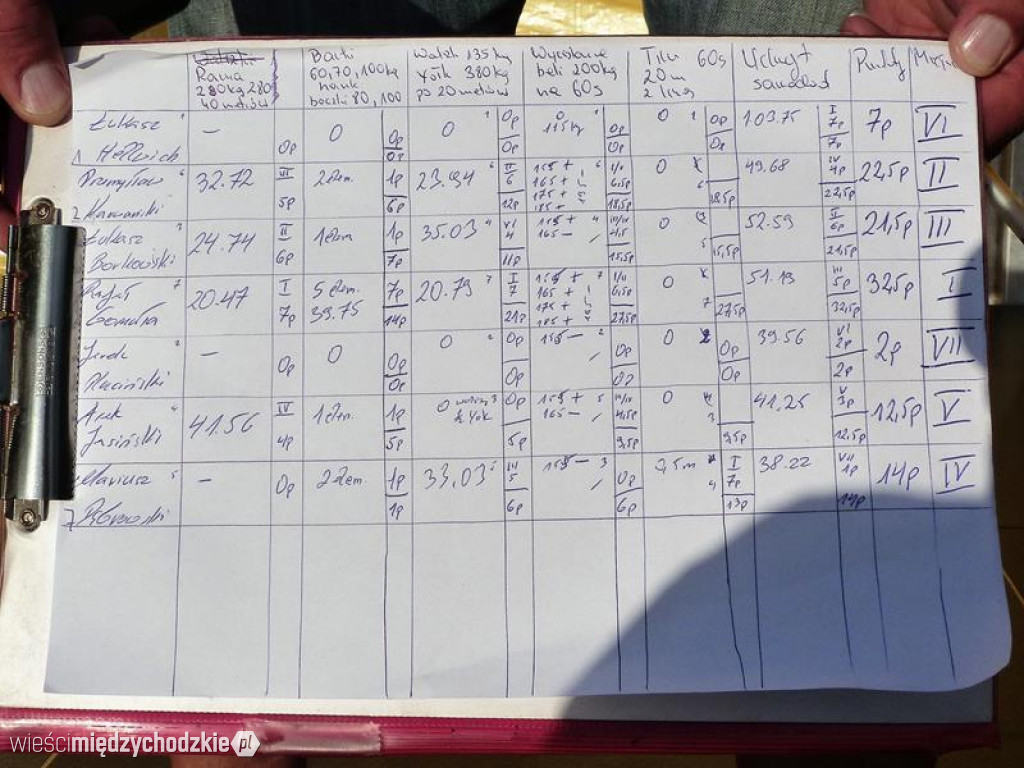 Rama
280kg 280
40 metrów
Barki
60,70,100kg
boczki 80,100
Walek 135kg
York 380kg
po 20 metrów
beli 200kg
na 60s
Tiru 60s
20m
z liną
Uchwyt
samochód
Punkty
Miejsce
1 Łukasz
Hellwich
—
0p
0
0p
0p
0
0p
0p
0
115kg
0p
0p
0
0p
0p
103.75
I
7p
7p
7p
VI
2
32.72
III
5p
2 elem.
1p
6p
23.94
II
6
12p
155 +
165 +
175 +
185 +
I/II
6,5p
18,5p
0
18,5p
49.68
IV
4p
22,5p
22,5p
II
Łukasz
Borkowski
24.74
II
6p
1 elem
1p
7p
35.03
VI
4
11p
155 +
165 —
III/IV
4,5
15,5p
0
15,5p
52.59
II
6p
21,5p
21,5p
III
Rafał
20.47
I
7p
5 elem.
39.75
7p
14p
20.79
I
7
21p
155 +
165 +
175 +
185 +
I/II
6,5p
27,5p
0
27,5p
51.19
III
5p
32,5p
32,5p
I
—
0p
0
0p
0p
0
0p
0p
155 —
0p
0p
0
0p
0p
39.56
VI
2p
2p
2p
VII
Arek
Jasiński
41.56
IV
4p
1 elem.
1p
5p
0
0p
5p
155 +
165 —
III/IV
4,5p
9,5p
0
9,5p
41,25
V
3p
12,5p
12,5p
V
7 Mariusz
—
0p
2 elem.
1p
1p
33,03
III
5
6p
155 —
0p
6p
I
7p
13p
38.22
VII
1p
14p
14p
IV
wieścimiędzychodzkie.pl